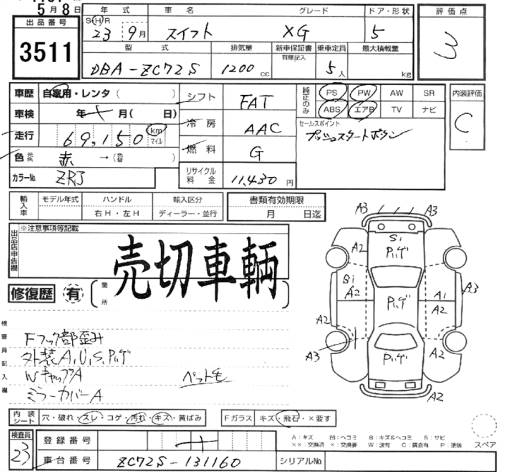 5月8日
出品番号 年式 車名 グレード ドア・形状 評価点
3511
S H R 23 9月 スイフト XG 5
3
型式 排気量 新車保証書 有無記入 乗車定員 最大積載量
DBA-ZC72S 1200cc 5人 kg
車歴 自家用・レンタ( ) シフト FAT 純正のみ PS PW AW SR 内装評価
ABS エアB TV ナビ
車検 年 月( 日) 冷房 AAC セールスポイント C
プッシュスタートボタン
走行 69,150 km マイル 燃料 G
色 赤 →( )
カラーNo. ZRJ リサイクル料金 11,430円
輸入車 モデル年式 ハンドル 輸入区分 書類有効期限
右H・左H ディーラー・並行 月 日迄
出品店申告欄 ※注意事項等記載
売切車輌
修復歴 有 箇所
検査員記入欄
Fフック部歪み
外装A,U,S,Pパゲ
WキャップA ペット毛
ミラーカバーA
A3 A3
A2 Si A2
Pハゲ
Bi A2 Pハゲ A1 A2
A2 A2
A3 Pハゲ A3
内装シート 穴・破れ・スレ・コゲ・汚れ・キズ・黄ばみ Fガラス キズ・飛石・×要す
スペア
検査員 23 登録番号
車台番号 ZC72S-131160 シリアルNo